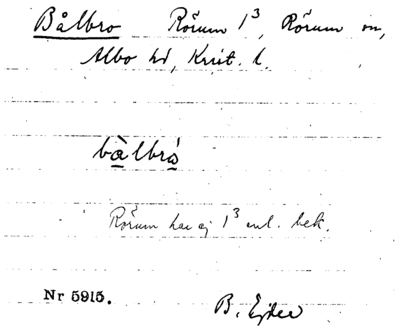 Bålbro Rörum 1³, Rörum sn,
Albo hd, Krist. l.
bàlbrò
Rörum har ej 1³ enl. bek.
Nr 5915.
B. Ejder